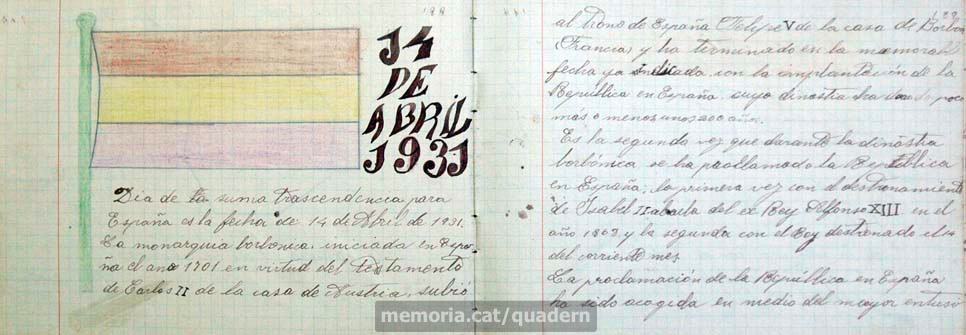 14
DE
ABRIL
1931
Dia de la suma trascendencia para
España es la fecha de 14 de Abril de 1931.
La monarquia borbonica, iniciada en Espa-
ña el año 1701 en virtud del Testamento
de Carlos II de la casa de Austria, subió
al trono de España Felipe V de la casa de Borbon
(Francia) y ha terminado en la memorable
fecha ya indicada con la implantación de la
República en España, cuya dinastia ha poco
más o menos unos 200 años.
Es la segunda vez que durante la dinastia
borbónica se ha proclamado la República
en España; la primera vez con el destronamiento
de Isabel II abuela del ex Rey Alfonso XIII en el
año 1869 y la segunda con el Rey destronado el 14
del corriente mes
La proclamación de la República en España
ha sido acogida en medio del mayor entusi
memoria.cat/quadern